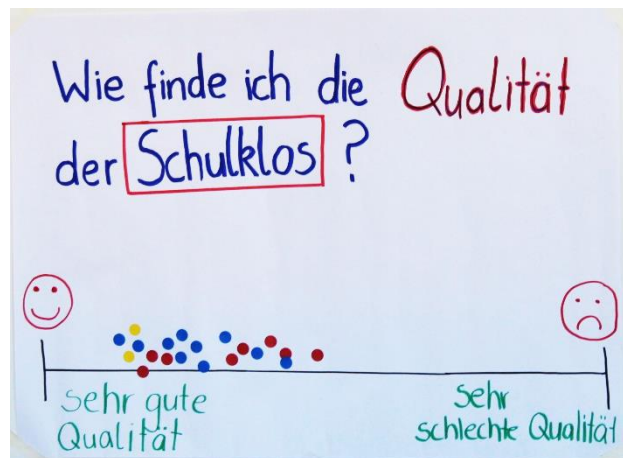 Wie finde ich die Qualität
der Schulklos ?
Sehr gute
Qualität
Sehr
schlechte Qualität